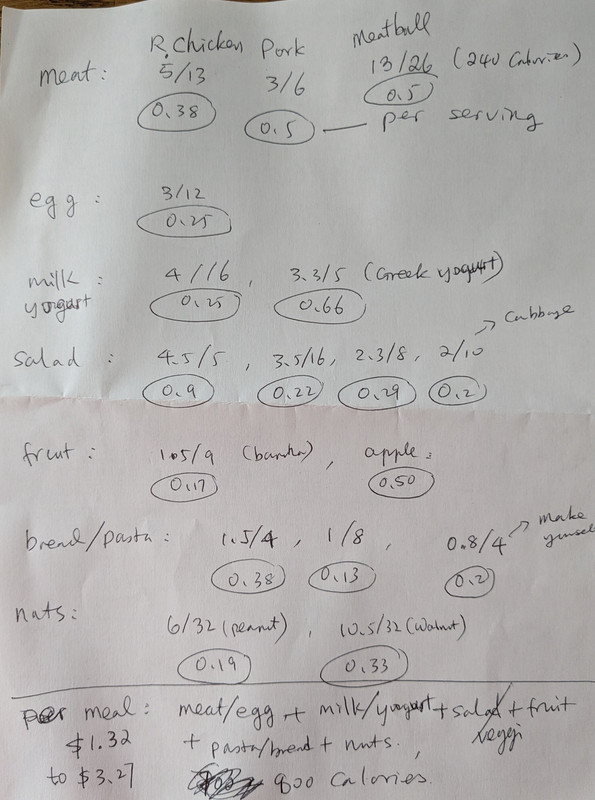 R. Chicken Pork meatball
meat: 5/13 3/6 13/26 (240 Calories)
0.38 0.5 0.5
per serving
egg: 3/12
0.25
milk yogurt: 4/16, 3.3/5 (Greek yogurt)
0.25 0.66
Cabbage
salad: 4.5/5, 3.5/16, 2.3/8, 2/10
0.9 0.22 0.29 0.2
fruit: 1.5/9 (banana), apple:
0.17 0.50
bread/pasta: 1.5/4, 1/8, 0.8/4 make
0.38 0.13 0.2
nuts:
6/32 (peanut), 10.5/32 (walnut)
0.19 0.33
per meal: meat/egg + milk/yogurt + salad/veggi + fruit
$1.32 + pasta/bread + nuts.,
to $3.27 800 Calories.